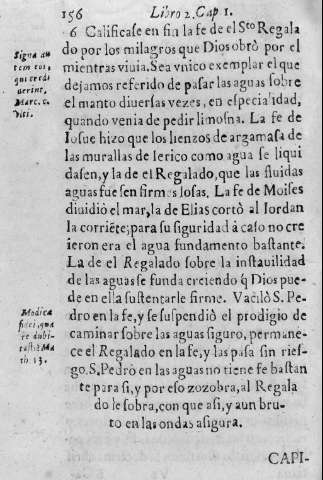 156 Libro 2. Cap 1.
6 Calificase en fin la fe de el Sto Regala
do por los milagros que Dios obrò por el
mientras viuia. Sea vnico exemplar el que
dejamos referido de pasar las aguas sobre
el manto diuersas vezes, en especialidad,
quando venia de pedir limosna. La fe de
Iosue hizo que los lienzos de argamasa de
las murallas de Ierico como agua se liqui
dasen, y la de el Regalado, que las fluidas
aguas fuesen firmes losas. La fe de Moises
diuidiò el mar, la de Elias cortò al Iordan
la corriẽte; para su siguridad à caso no cre
ieron era el agua fundamento bastante.
La de el Regalado sobre la instauilidad
de las aguas se funda creciendo q̃ Dios pue-
de en ella sustentarle firme. Vacilò S. Pe-
dro en la fe, y se suspendiò el prodigio de
caminar sobre las aguas siguro, permane-
ce el Regalado en la fe, y las pasa sin ries-
go. S. Pedro en las aguas no tiene fe bastan
te para si, y por eso zozobra, al Regala
do le sobra, con que asi, y aun bru-
to en las ondas asigura.
CAPI-
Signa au
tem eos,
qui credi
derint.
Marc. c.
Viti.
Modica
fidei, qua
re dubi-
tasti? Ma
th 13.